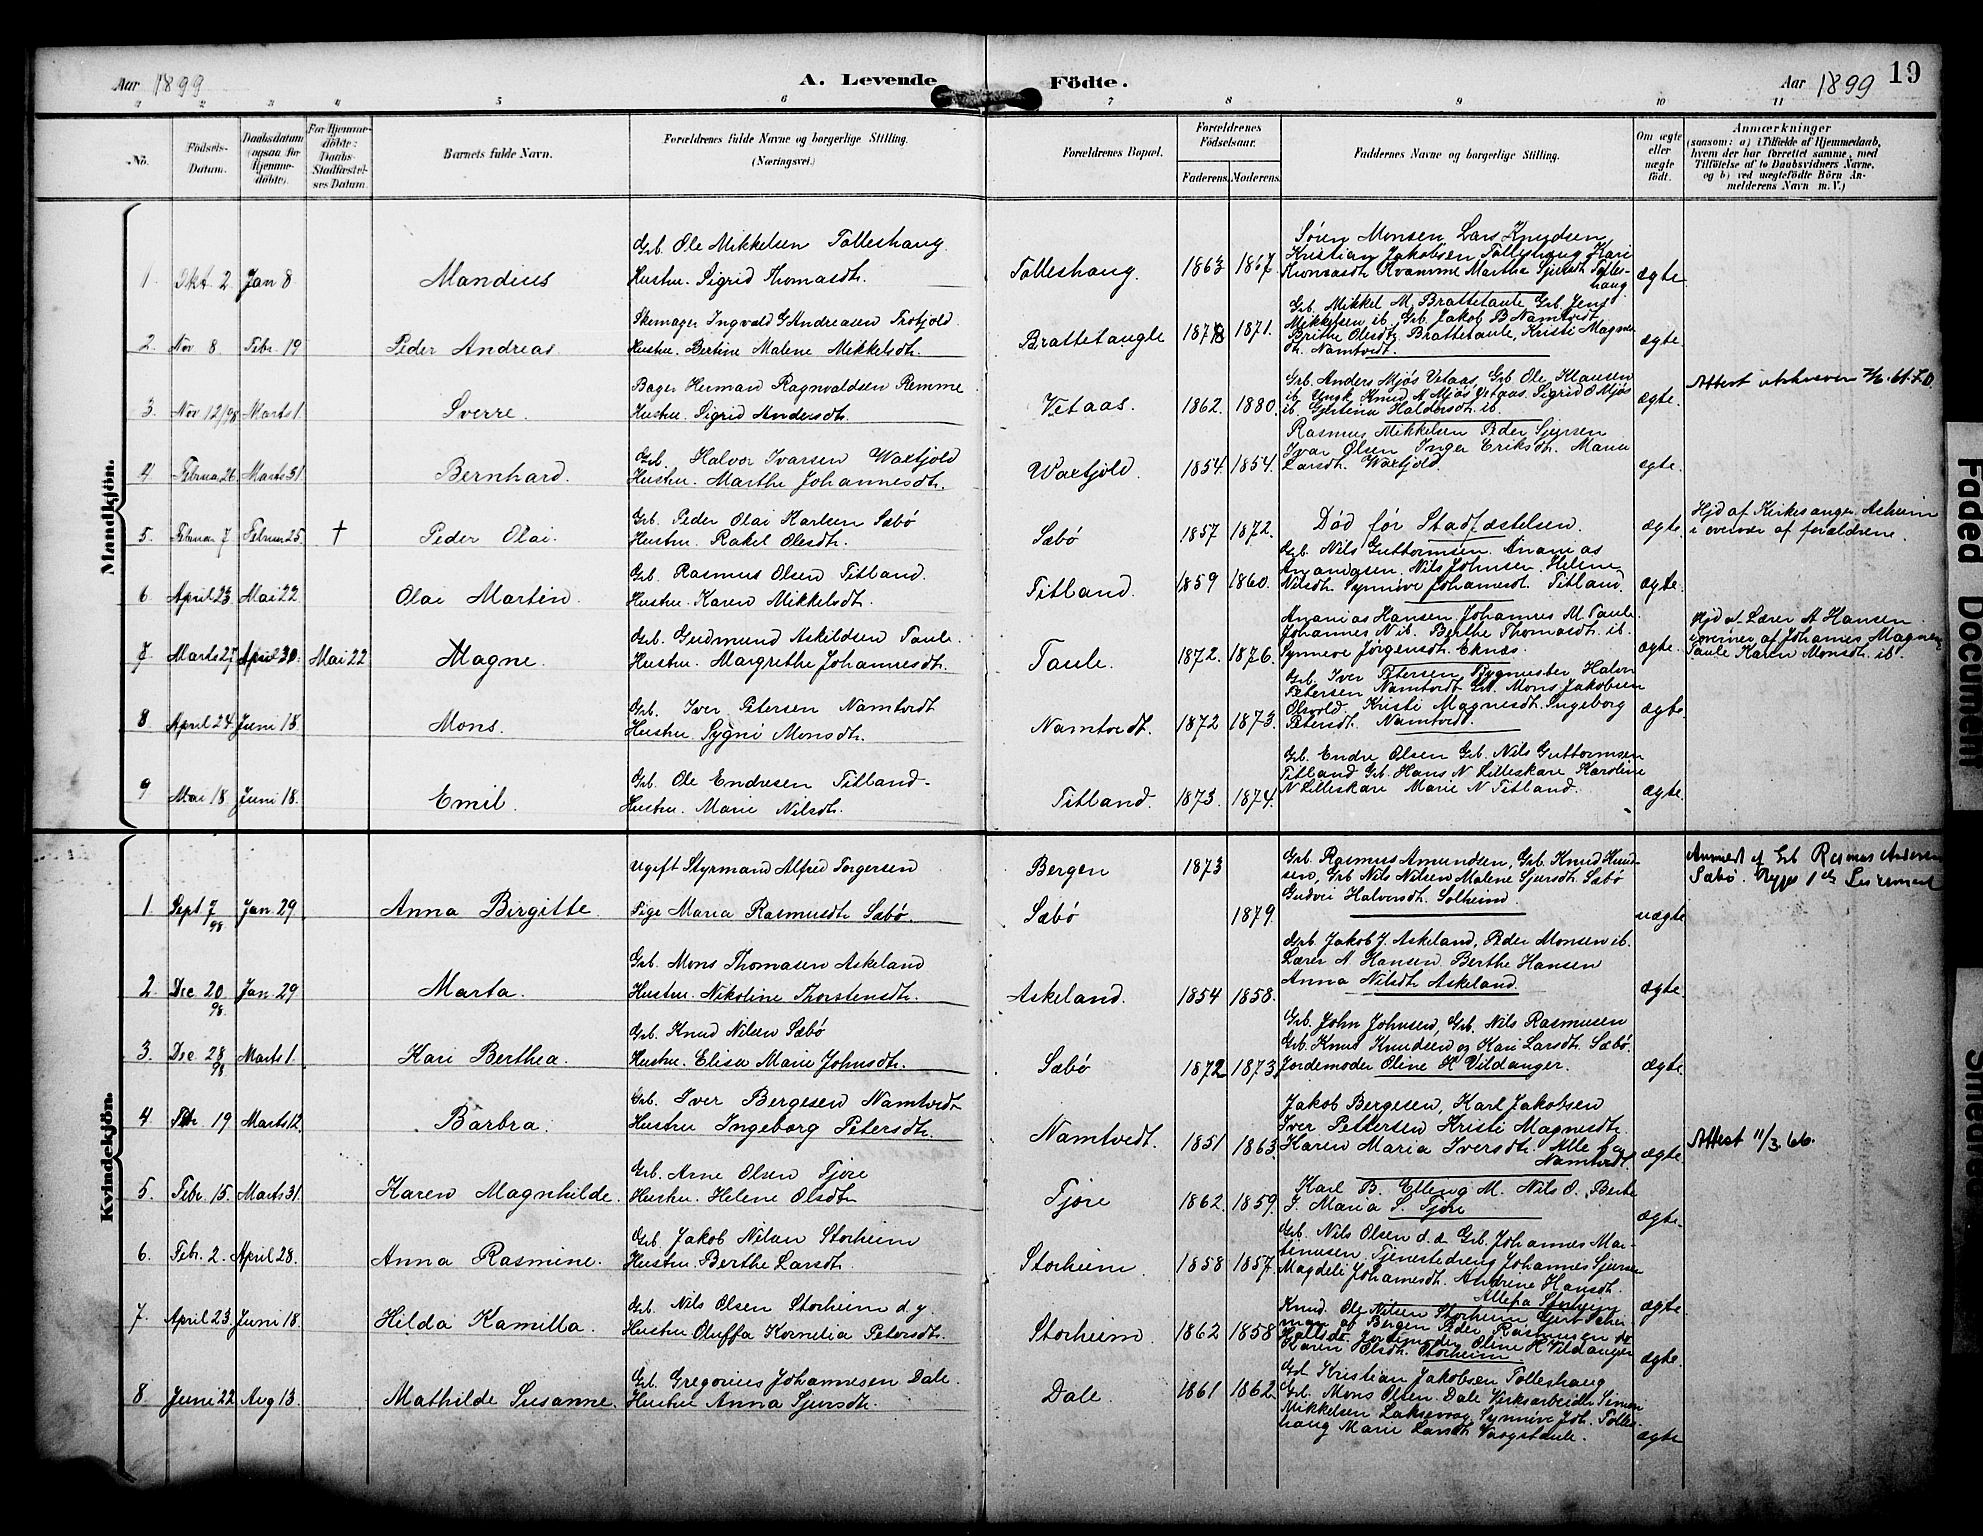 Aar 1899
A. Levende Födte.
Aar 1899
19
1 2 3 4 5 6 7 8 9 10 11
No.
Födsels-Datum.
Daabsdatum (ogsaa for Hjemme-døbte).
For Hjemme-döbte: Daabs-Stadfæstel-ses Datum.
Barnets fulde Navn.
Forældrenes fulde Navne og borgerlige Stilling.
(Næringsvei.)
Forældrenes Bopæl.
Forældrenes Födselsaar.
Faderens. Moderens.
Faddernes Navne og borgerlige Stilling.
Om ægte eller uægte födt.
Anmærkninger
(saasom: a) i Tilfælde af Hjemmedaab, hvem der har forrettet samme, med Tilföielse af to Daabsvidners Navne, og b) ved uægtefödte Börn An-melderens Navn m. V.)
Mandkjön.
1. Okt. 2 Jan 8 Mandius
Grb. Ole Mikkelsen Tolleshaug.
Hustru. Sigrid Thomasdtr.
Tolleshaug. 1863 1867.
Søren Monsen Lars Knudsen
Kristian Jakobsen Tolleshaug Kari
Kvamme Martha Sjursdt Tolles-
haug
ægte
2. Nov 8 Febr. 19 Peder Andreas
Skomager Ingvald G Andreasen Trotjold.
Hustru. Bertine Malene Mikkelsdtr.
Brattetaugle 1878 1871.
Grb. Mikkel M. Brattetaule Grb. Jens
Mikkelsen ib. Grb. Jakob B Namtvdt
Brithe Olesdtr Brattetaule, Kristi Magne
dtr. Namtvidt.
ægte.
3. Nov 12/98 Marts 1 Sverre.
Bager Herman Ragnvaldsen Remme
Hustru. Sigrid Andersdtr.
Vetaas. 1862. 1880.
Grb. Anders Mjøs Vetaas, Grb. Ole Klausen
ib. Ungk. Knud A Mjøs Vetaas. Sigrid O Mjøs
ib. Gjertina Haldorsdtr. ib.
ægte.
Attest 7/6. 61.
4 Februar 26. Marts 31 Bernhard.
Grb. Halvor Ivarsen Waxtjold
Hustru. Marthe Johannesdtr.
Waxtjold. 1854. 1854.
Rasmus Mikkelsen Peder Sjursen
Ivar Olsen Inger Eriksdtr. Marie
Larsdtr. Waxtjold.
ægte.
5. Februar 7 Februar 25. † Peder Olai.
Grb. Peder Olai Karlsen Sæbö
Hustru. Rakel Olesdtr.
Sæbö 1857 1872.
Död för Stadfæstelsen.
ægte
Hjd af Kirkesanger Askeim
i overvær af forældrene.
6 April 23. Mai 22 Olai Martin.
Grb. Rasmus Olsen Titland.
Hustru. Karen Mikkelsdtr.
Titland. 1859 1860.
Grb. Nils Guttormsen. Ananias
Ananiasen. Nils Johnsen. Helene
Nilsdtr. Synneve Johannesdt. Titland.
ægte.
7 Marts 27 April 30 Mai 22 Magne.
Grb. Gudmund Askildsen Taule.
Hustru. Margrethe Johannesdtr.
Taule. 1872. 1876.
Ananias Hansen Johannes M. Taule
Johannes N ib. Berthe Thomasdtr. ib.
Synneve Jörgensdtr. Eknæs.
ægte.
Hjd af Lærer A Hansen
i overvær af Johannes Magne
Taule Karen Monsdtr. ib.
8 April 24. Juni 18. Mons.
Grb. Iver Petersen Namtvidt
Hustru. Sygni Monsdtr.
Namtvedt. 1872 1873.
Grb. Iver Petersen Bygmester Halvor
Petersen Namtvedt Grb. Mons Jakobsen
Olsvold. Kristi Magnesdtr. Ingeborg
Petersdtr. Namtvidt.
ægte.
9 Mai 18. Juni 18. Emil.
Grb. Ole Endresen Titland.
Hustru. Marie Nilsdtr.
Titland. 1873. 1874.
Grb. Endre Olsen Grb. Nils Guttormsen
Titland Grb. Hans N Lilleskare Karoline
N Lilleskare Marie N Titland.
ægte.
Kvindekjön.
1 Sept 7/98 Jan 29 Anna Birgitte.
Ugift Styrmand Alfred Torgersen
Pige Maria Rasmusdtr Sæbö.
Bergen 1873
Sæbö 1879.
Grb. Rasmus Amundsen, Grb. Knud Knud-
sen, Grb Nils Nilsen Malene Sjursdtr. Sæbö
Gudvei Halvorsdtr. Solheim.
uægte.
Anmeldt af Grb Rasmus Andersen
Sæbö.
2. Dec 20/98. Jan. 29 Marta.
Grb. Mons Thomasen Askeland
Hustru. Nikoline Thorstensdtr.
Askeland. 1854 1858.
Grb. Jakob J. Askeland, Peder Monsen ib.
Lærer A Hansen Berthe Hansen
Anna Nilsdtr Askeland.
ægte.
3. Dec 28/98 Marts 1. Kari Berthea.
Grb. Knud Nilsen Sæbö
Hustru. Elisa Marie Johnsdtr.
Sæbö 1872 1873
Grb. John Johnsen, Grb. Nils Rasmusen
Grb. Knut Knudsen og Kari Larsdtr. Sæbö.
Jordemoder Oline H Vildanger.
ægte.
4 Febr 19 Marts 12. Barbra.
Grb. Iver Bergesen Namtvedt
Hustru Ingeborg Petersdtr.
Namtvedt. 1851 1863
Jakob Bergesen, Karl Jakobsen
Iver Pettersen Kristi Magnusdtr.
Karen Maria Iversdtr. Alle fra
Namtvedt
ægte.
Attest 11/3. 66.
5. Febr. 15. Marts 31. Karen Magnhilde.
Grb. Arne Olsen Fjøre
Hustru. Helene Olsdtr
Fjøre 1862. 1859.
Karl B. Elling M. Nils O. Berte
J. Maria S. Fjøre
ægte.
6. Febr. 2. April 28. Anna Rasmine.
Grb. Jakob Nilsen Storheim
Hustru. Berthe Larsdtr.
Storheim. 1858 1857.
Grb. Nils Olsen d.æ Grb. Johannes Mar-
tinusen, Tjenestedreng Johannes Sjursen
Magdeli Johannesdtr. Andrine Hansdtr.
Alle fra Storheim
ægte
7. April 23. Juni 18. Hilda Kamilla.
Grb. Nils Olsen Storheim d.y.
Hustru Oluffa Kornelia Petersdtr.
Storheim. 1862 1858
Knud Ole Nilsen Storheim Gjert
man af Bergen Peder Rasmusen
Jordemoder Oline H Vildanger
Karen Olsdtr. Storheim
ægte.
8 Juni 22 Aug 13. Mathilde Susanne.
Grb. Gregorius Johannesen Dale.
Hustru Anna Sjursdtr.
Dale. 1861 1862
Grb Kristian Jakobsen Tolleshaug
Grb. Mons Olsen Dale Verksarbeider Simon
Mikkelsen Laksevaag Synnöve Joh. Tolles-
haug Marie Larsdtr Vaagstaule.
ægte
Faded Document